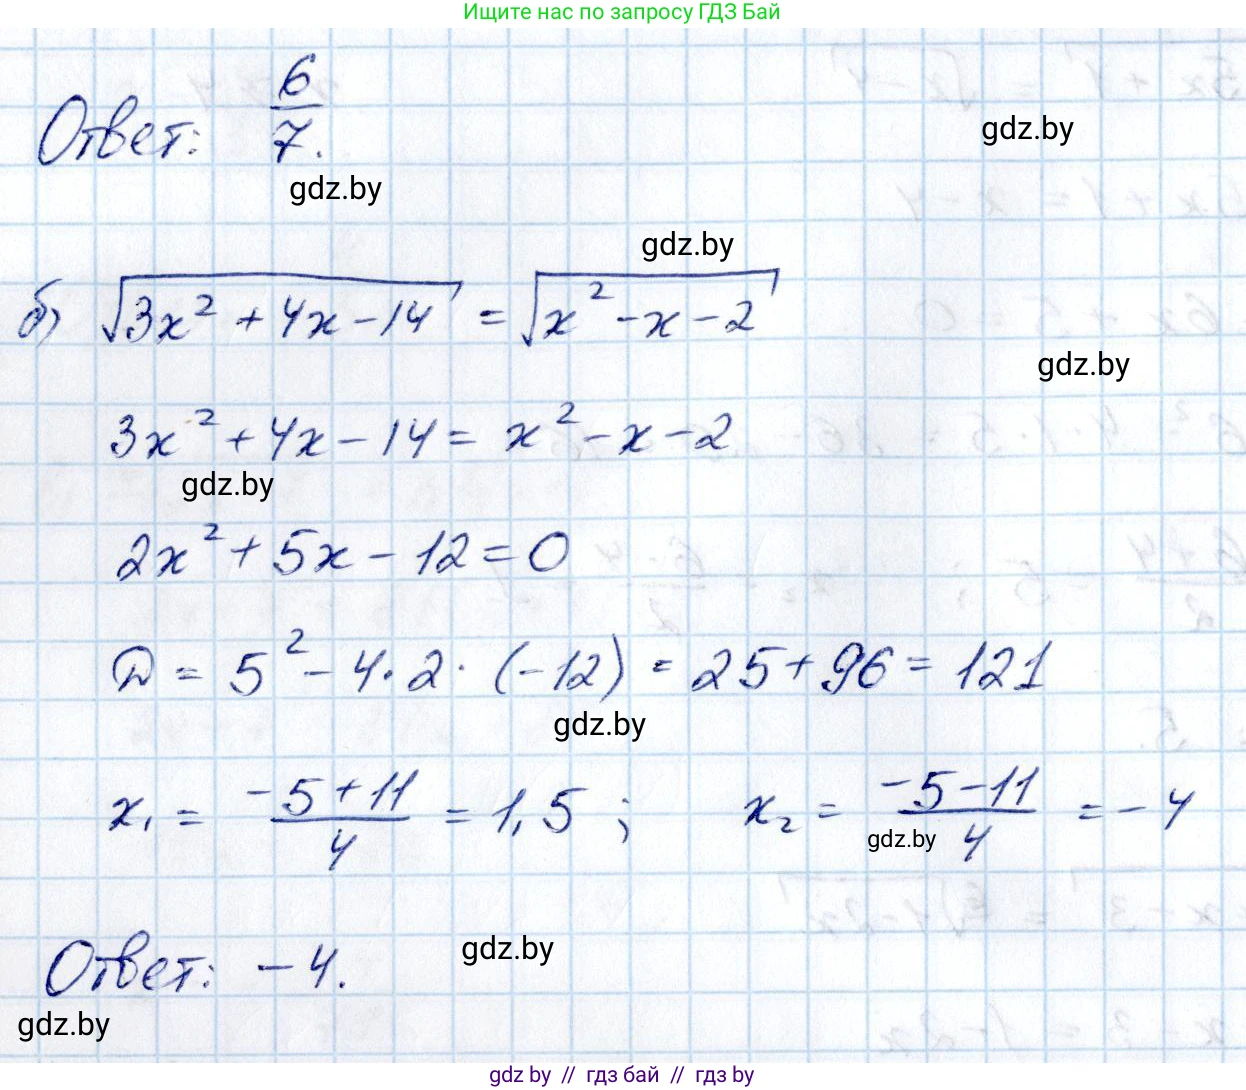 Ищите нас по запросу ГДЗ Бай
Ответ: 6/7.
gdz.by
gdz.by
gdz.by
б) √(3x² + 4x - 14) = √(x² - x - 2)
gdz.by
3x² + 4x - 14 = x² - x - 2
gdz.by
2x² + 5x - 12 = 0
D = 5² - 4 · 2 · (-12) = 25 + 96 = 121
gdz.by
x₁ = (-5 + 11)/4 = 1,5 ; x₂ = (-5 - 11)/4 = -4
gdz.by
Ответ: -4.
gdz.by
gdz.by
gdz.by // гдз бай // гдз by